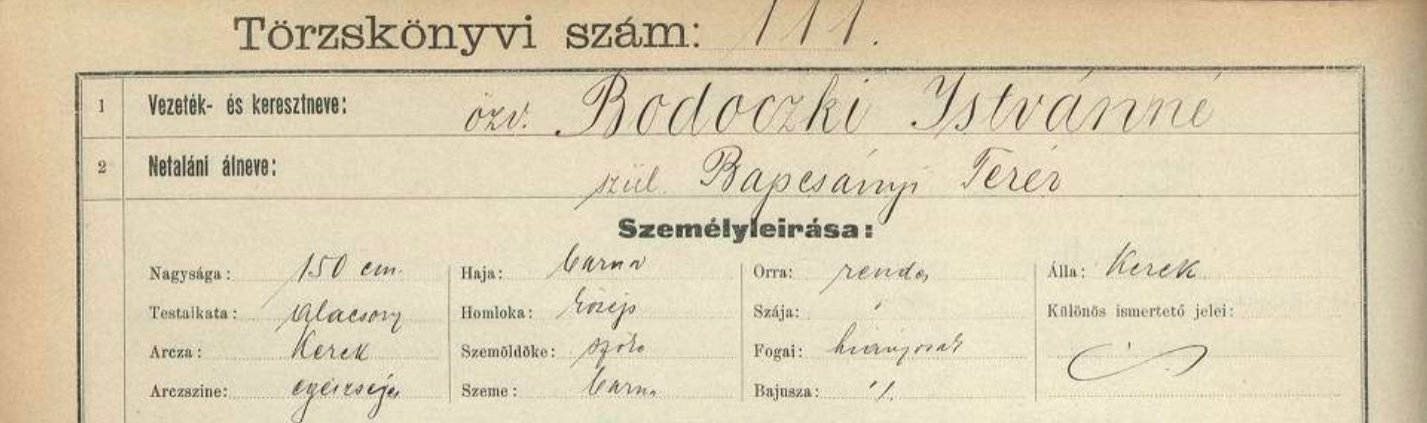 Törzskönyvi szám: 111.
1 Vezeték- és keresztneve: özv. Bodoczki Istvánné
2 Netaláni álneve: szül. Bapcsányi Teréz
Személyleirása:
Nagysága: 150 cm. Haja: barna Orra: rendes Álla: Kerek
Testalkata: alacsony Homloka: közép Szája: " Különös ismertető jelei:
Arcza: Kerek Szemöldöke: szőke Fogai: hiányosak
Arczszine: egészséges Szeme: barna Bajusza: "/.